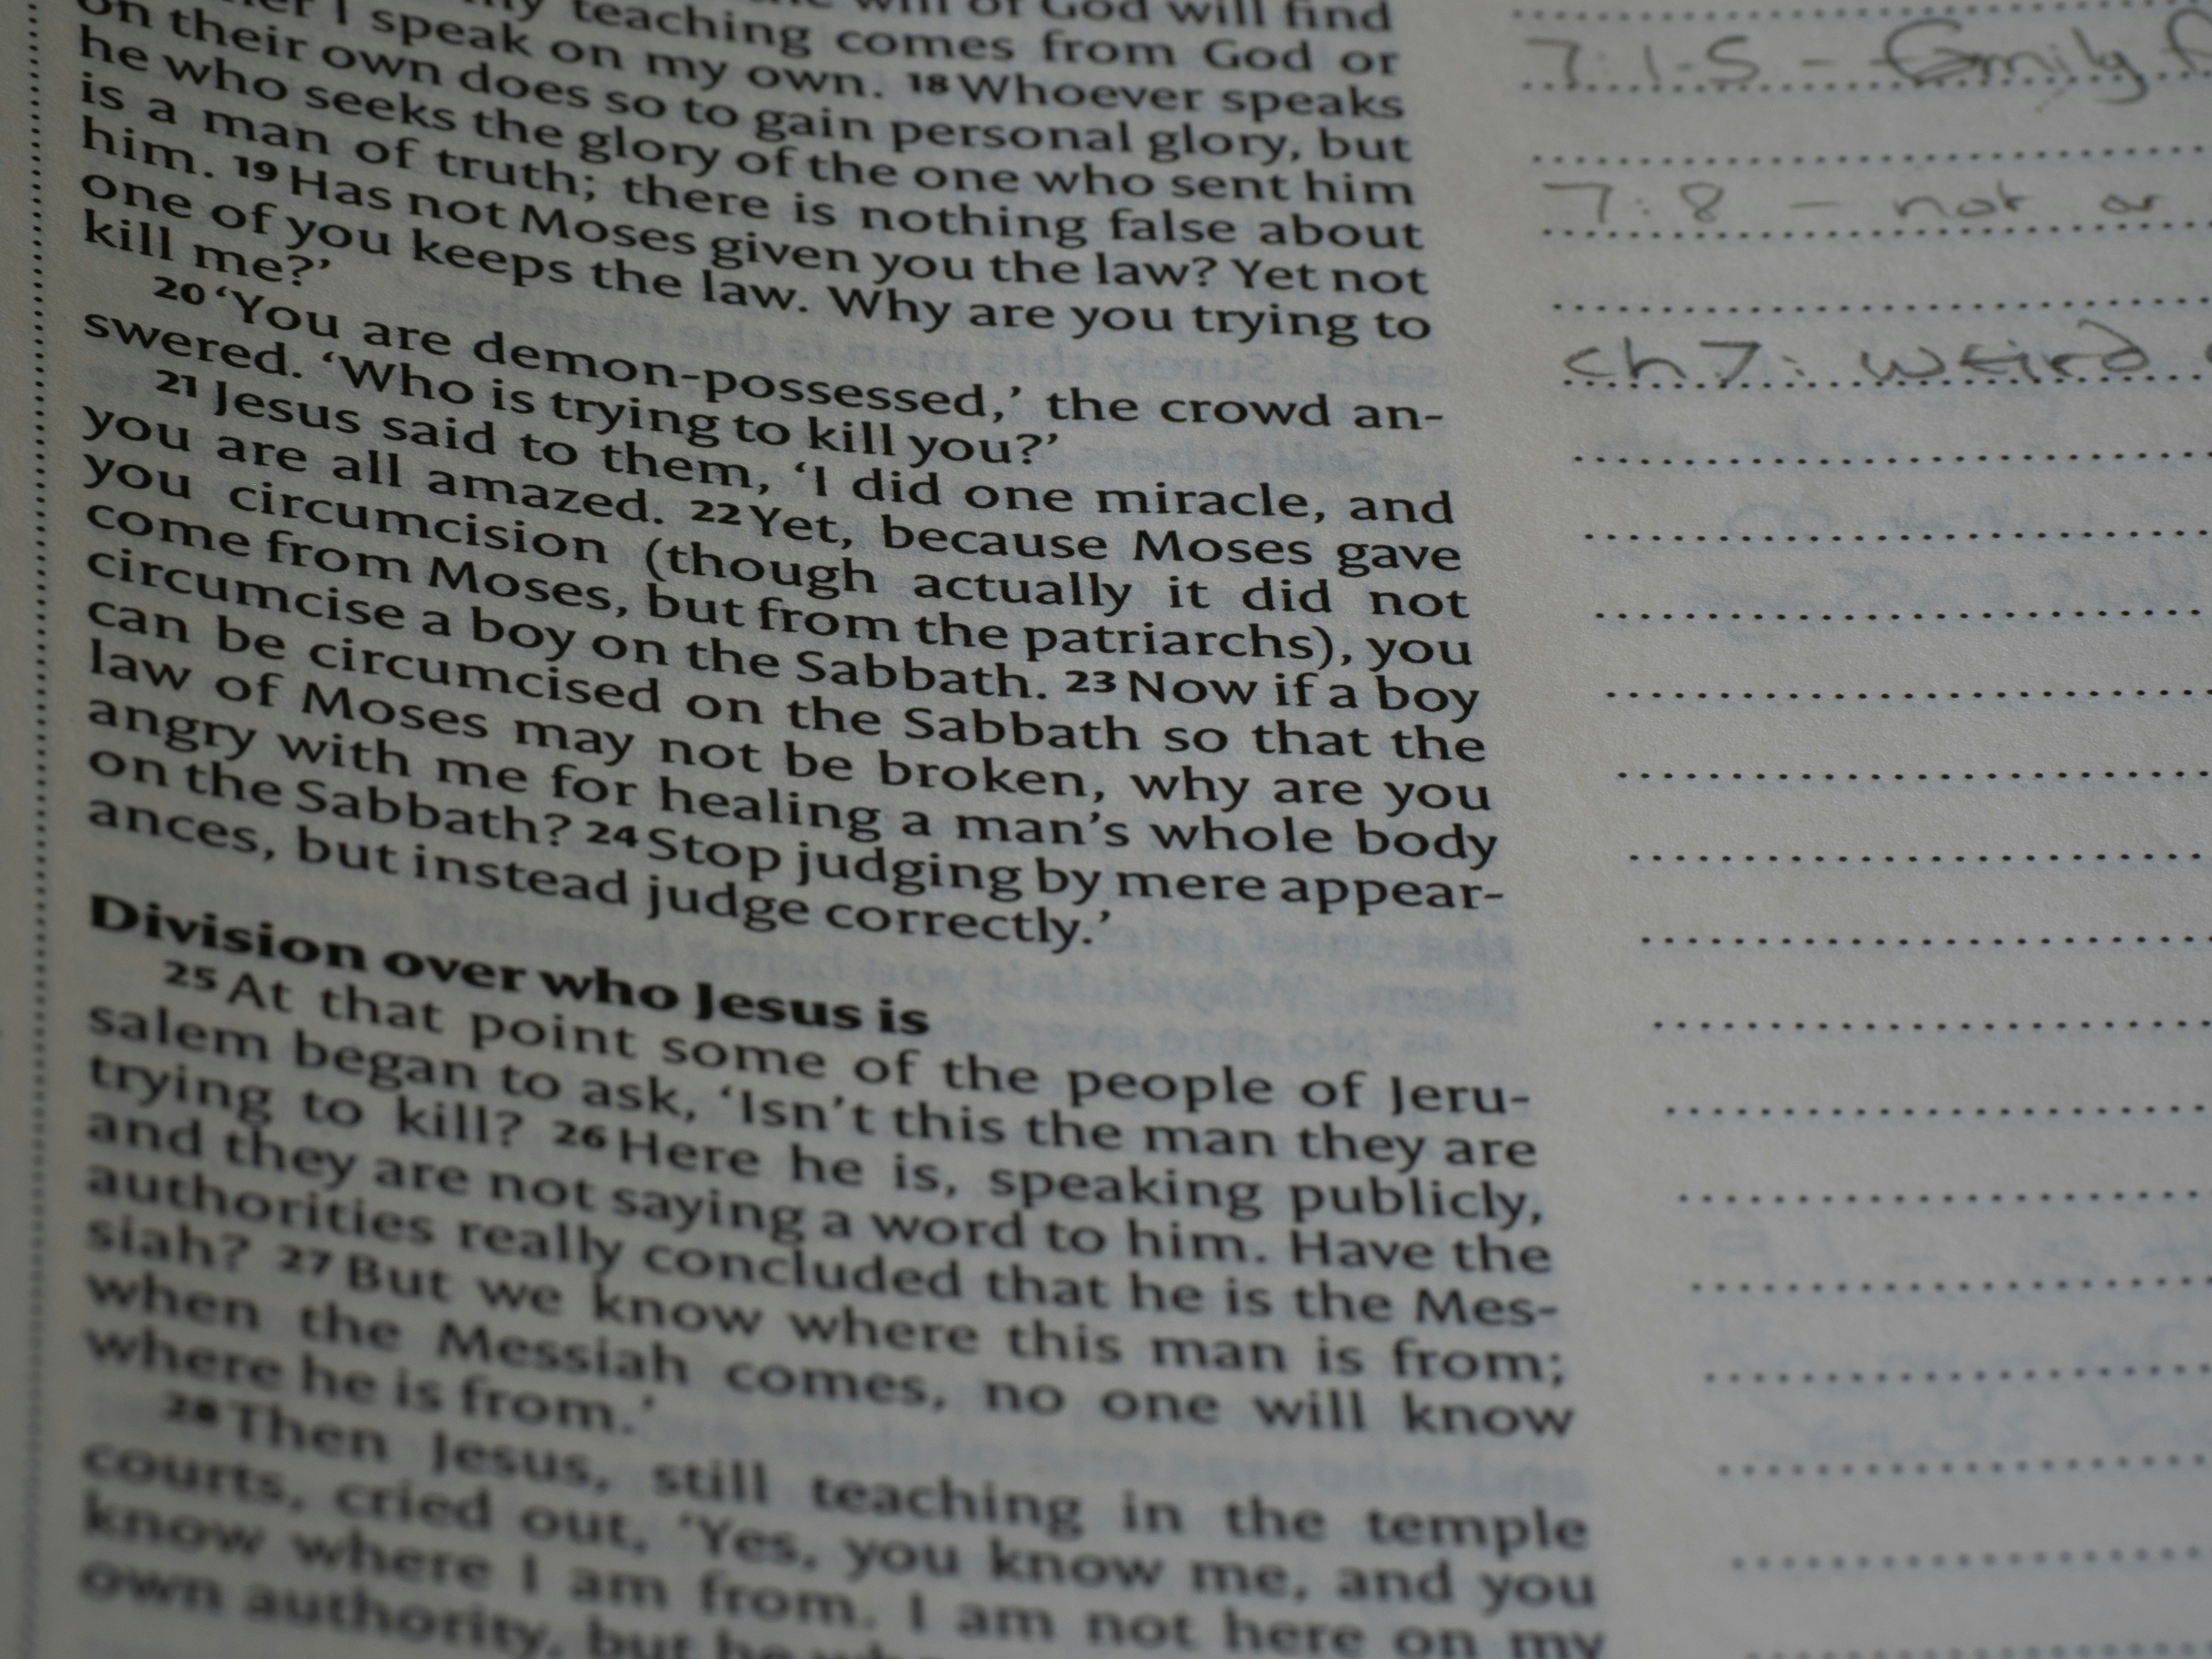 I speak on my teaching comes from God or
on their own does so to gain personal glory, but
my own. 18 Whoever speaks
he who seeks the glory of the one who sent him
is a man of truth; there is nothing false about
him. 19 Has not Moses given you the law? Yet not
one of you keeps the law. Why are you trying to
kill me?’
20 ‘You are demon-possessed,’ the crowd an-
swered. ‘Who is trying to kill you?’
21 Jesus said to them, ‘I did one miracle, and
you are all amazed. 22 Yet, because Moses gave
you circumcision (though actually it did not
come from Moses, but from the patriarchs), you
circumcise a boy on the Sabbath. 23 Now if a boy
can be circumcised on the Sabbath so that the
law of Moses may not be broken, why are you
angry with me for healing a man’s whole body
on the Sabbath? 24 Stop judging by mere appear-
ances, but instead judge correctly.’
Division over who Jesus is
25 At that point some of the people of Jeru-
salem began to ask, ‘Isn’t this the man they are
trying to kill? 26 Here he is, speaking publicly,
and they are not saying a word to him. Have the
authorities really concluded that he is the Mes-
siah? 27 But we know where this man is from;
when the Messiah comes, no one will know
where he is from.’
28 Then Jesus, still teaching in the temple
courts, cried out, ‘Yes, you know me, and you
know where I am from. I am not here on my
own authority, but he
7:1-5 - family
7:8 - not
ch 7: weird